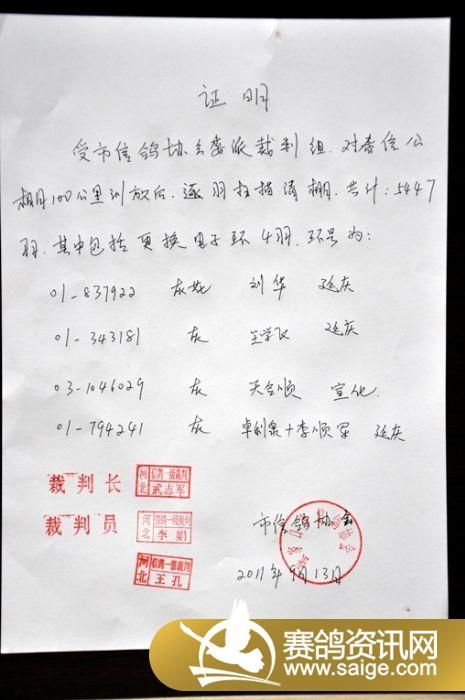 证 明
受市信鸽协会委派裁判组.对泰信公
棚100公里训放后.逐羽扫描清棚.共计:5447
羽.其中包括更换电子环4羽.环号为:
01-837922 灰 刘华 延庆
01-343181 灰 延庆
03-1046029 灰 天合顺 宣化
01-794241 灰 卓利泉+李顺军 延庆
裁判长 河北 信鸽一级裁判 武志军
裁判员 河北 信鸽一级裁判 李娟
河北 信鸽一级裁判 王孔
市信鸽协会
2011年9月13日
赛鸽资讯网
www.saige.com